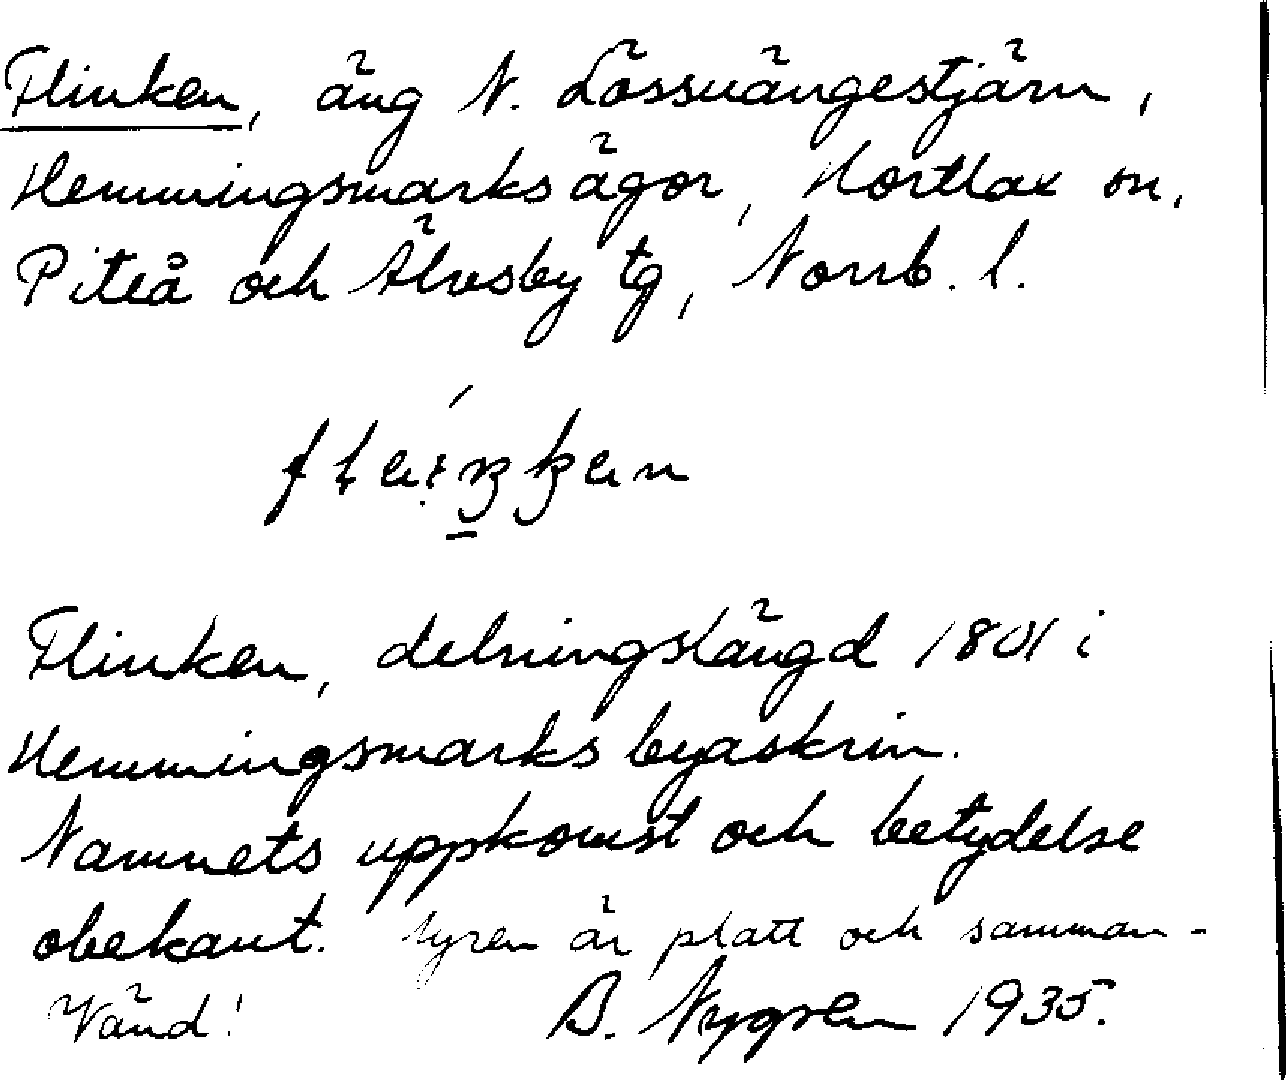 Flinken, äng N. Lössnängestjärn,
Hemmingsmarks ägor, Hortlax sn,
Piteå och Älvsby tg, Norrb. l.
Flinken, delningslängd 1801 i
Hemmingsmarks byaskrin.
Namnets uppkomst och betydelse
obekant. Myren är platt och samman-
Vänd! B. Nygren 1935.